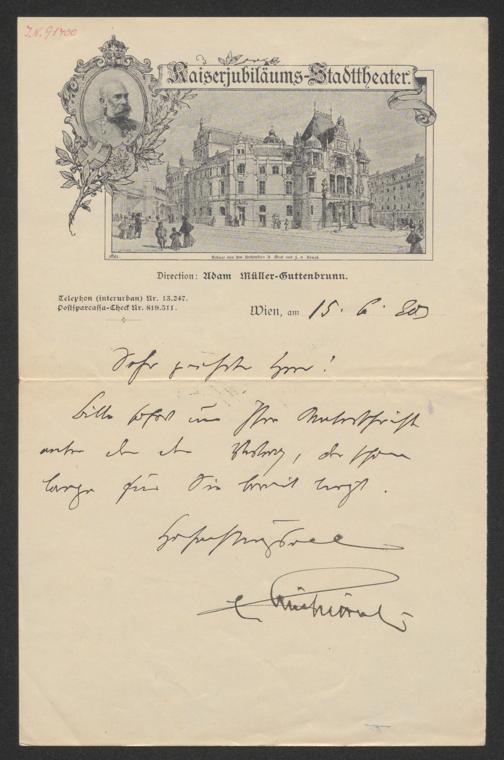 J.N. 91700
Kaiserjubiläums-Stadttheater.
Direction: Adam Müller-Guttenbrunn.
Telephon (interurban) Nr. 13.247.
Postsparcassa-Check Nr. 819.511.
Wien, am 15. 6. 
Sehr geehrter Herr!
Bitte sofort um Ihre Unterschrift
unter den Vertrag, der schon
lange für Sie bereit liegt.
Hochachtungsvoll